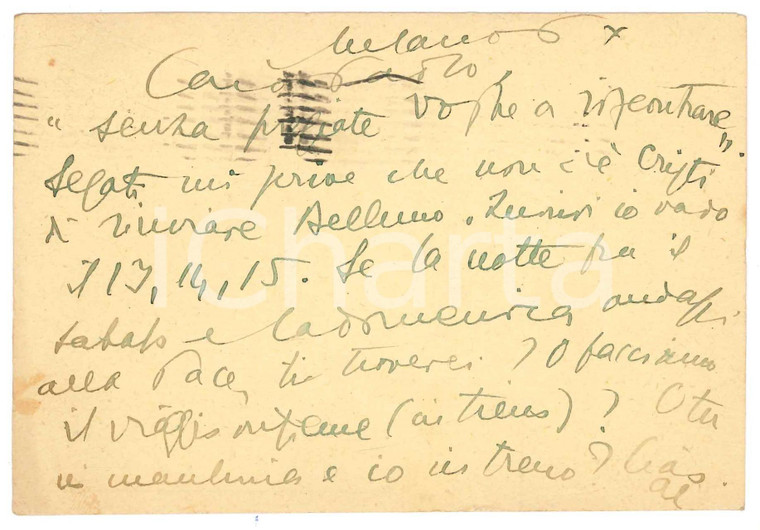 Milano
Caro Paolo
"senza voglie a riscontrare".
Segati mi che non c'è Cristi
di rinviare Belluno. io vado
il 13, 14, 15. Se la notte fra il
sabato e la domenica andassi
alla Pace, ti troverei? O facciamo
il viaggio insieme (in treno)? O tu
in macchina e io in treno? Ciao.
iCharta